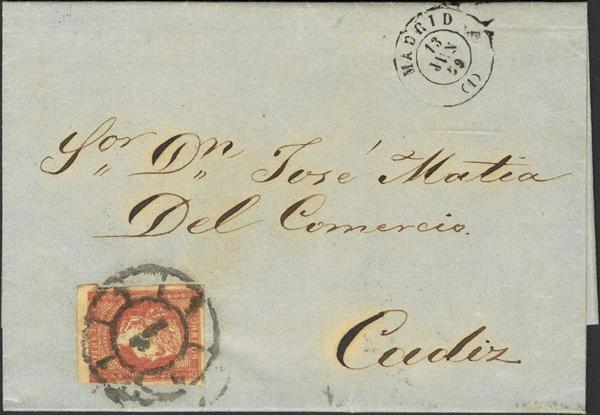 MADRID
13
JUN
59
(1)
Sor Dn José Matia
Del Comercio.
Cadiz
1